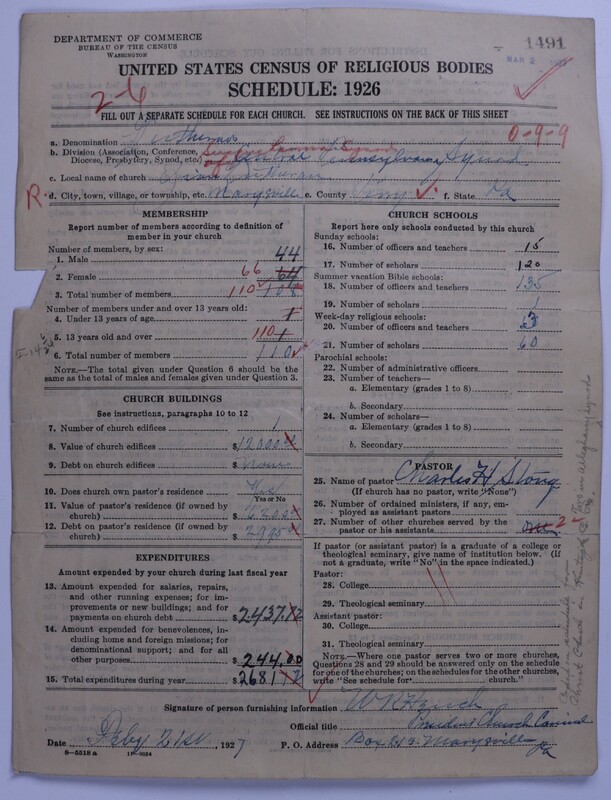 DEPARTMENT OF COMMERCE
BUREAU OF THE CENSUS
WASHINGTON
1491
MAR 2
UNITED STATES CENSUS OF RELIGIOUS BODIES
SCHEDULE: 1926
2-6
FILL OUT A SEPARATE SCHEDULE FOR EACH CHURCH. SEE INSTRUCTIONS ON THE BACK OF THIS SHEET
0-9-9
a. Denomination Lutheran
b. Division (Association, Conference, Diocese, Presbytery, Synod, etc.) Pennsylvania Synod
c. Local name of church Lutheran
R. d. City, town, village, or township, etc. Marysville e. County Perry f. State Pa
MEMBERSHIP
Report number of members according to definition of member in your church
Number of members, by sex:
1. Male 44
2. Female 66 64
3. Total number of members 110 108
Number of members under and over 13 years old:
4. Under 13 years of age 1
5. 13 years old and over 110 1
6. Total number of members 110
NOTE.—The total given under Question 6 should be the same as the total of males and females given under Question 3.
CHURCH BUILDINGS
See instructions, paragraphs 10 to 12
7. Number of church edifices 1
8. Value of church edifices $12000
9. Debt on church edifices $ none
10. Does church own pastor's residence Yes
Yes or No
11. Value of pastor's residence (if owned by church) $
12. Debt on pastor's residence (if owned by church) $2995
EXPENDITURES
Amount expended by your church during last fiscal year
13. Amount expended for salaries, repairs, and other running expenses; for improvements or new buildings; and for payments on church debt $2437.12
14. Amount expended for benevolences, including home and foreign missions; for denominational support; and for all other purposes $244.00
15. Total expenditures during year $2681 12
CHURCH SCHOOLS
Report here only schools conducted by this church
Sunday schools:
16. Number of officers and teachers 15
17. Number of scholars 120
Summer vacation Bible schools:
18. Number of officers and teachers 135
19. Number of scholars 1
Week-day religious schools:
20. Number of officers and teachers 3
21. Number of scholars 60
Parochial schools:
22. Number of administrative officers
23. Number of teachers—
a. Elementary (grades 1 to 8)
b. Secondary
24. Number of scholars—
a. Elementary (grades 1 to 8)
b. Secondary
PASTOR
25. Name of pastor Charles H. Stong
(If church has no pastor, write "None")
26. Number of ordained ministers, if any, employed as assistant pastors
27. Number of other churches served by the pastor or his assistants 2
If pastor (or assistant pastor) is a graduate of a college or theological seminary, give name of institution below. (If not a graduate, write "No" in the space indicated.)
Pastor:
28. College
29. Theological seminary
Assistant pastor:
30. College
31. Theological seminary
NOTE.—Where one pastor serves two or more churches, Questions 28 and 29 should be answered only on the schedule for one of the churches; on the schedules for the other churches, write "See schedule for church."
Signature of person furnishing information
Official title President Church Council
Date Feby 21st, 1927 P. O. Address Box 243 Marysville Pa
8-5518 a